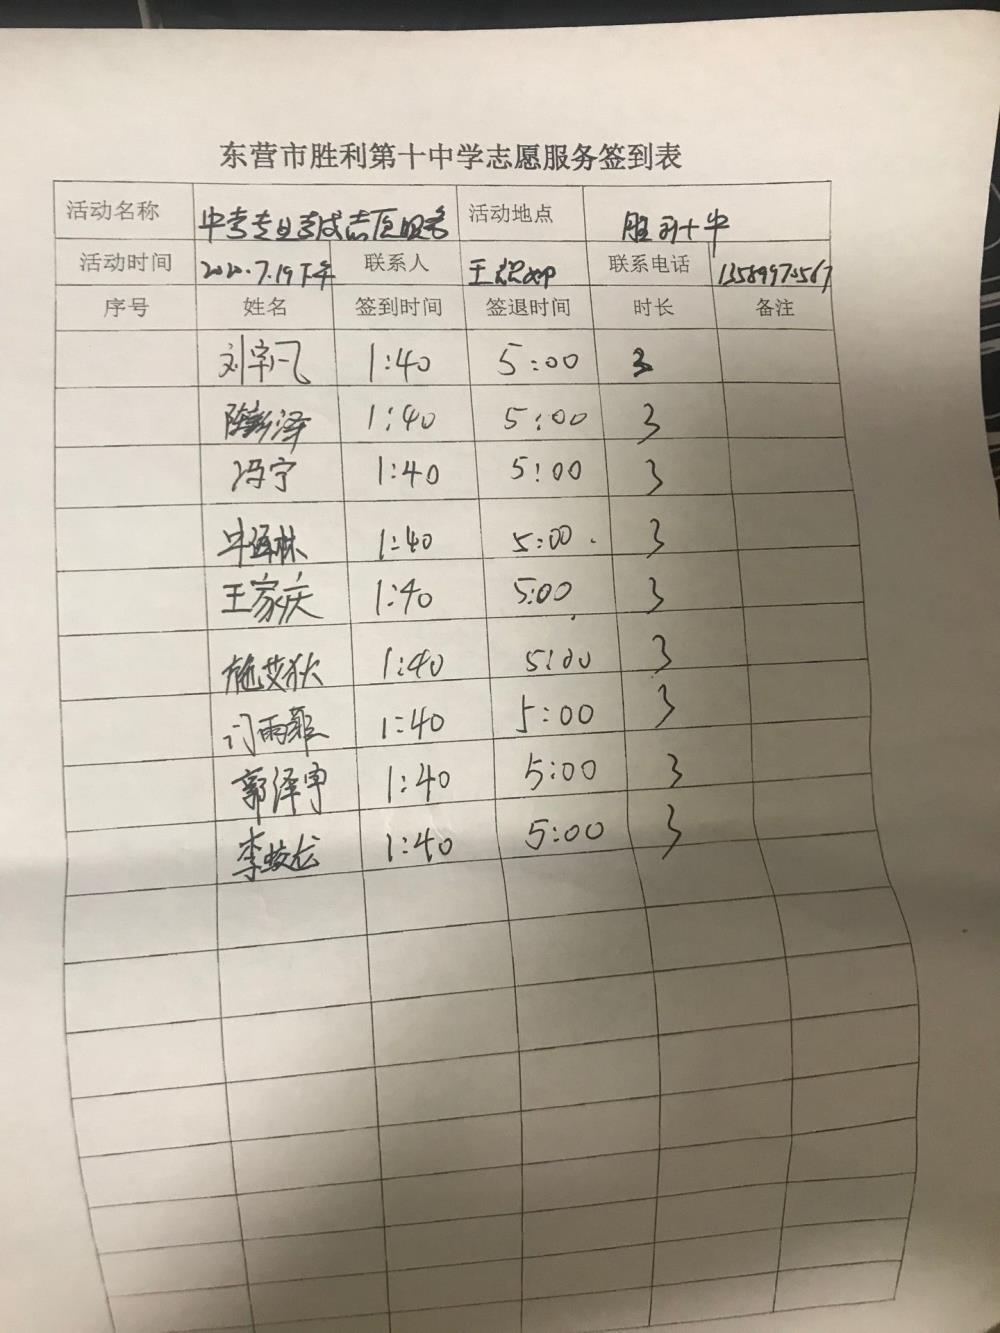 东营市胜利第十中学志愿服务签到表
活动名称 中考专业考试志愿服务 活动地点 胜利十中
活动时间 2020.7.19下午 联系人 王 联系电话 13589970567
序号 姓名 签到时间 签退时间 时长 备注
刘宇飞 1:40 5:00 3
陈彭泽 1:40 5:00 3
冯宁 1:40 5:00 3
1:40 5:00 3
王家庆 1:40 5:00 3
施艾狄 1:40 5:00 3
门雨菲 1:40 5:00 3
郭泽宇 1:40 5:00 3
李蛟龙 1:40 5:00 3